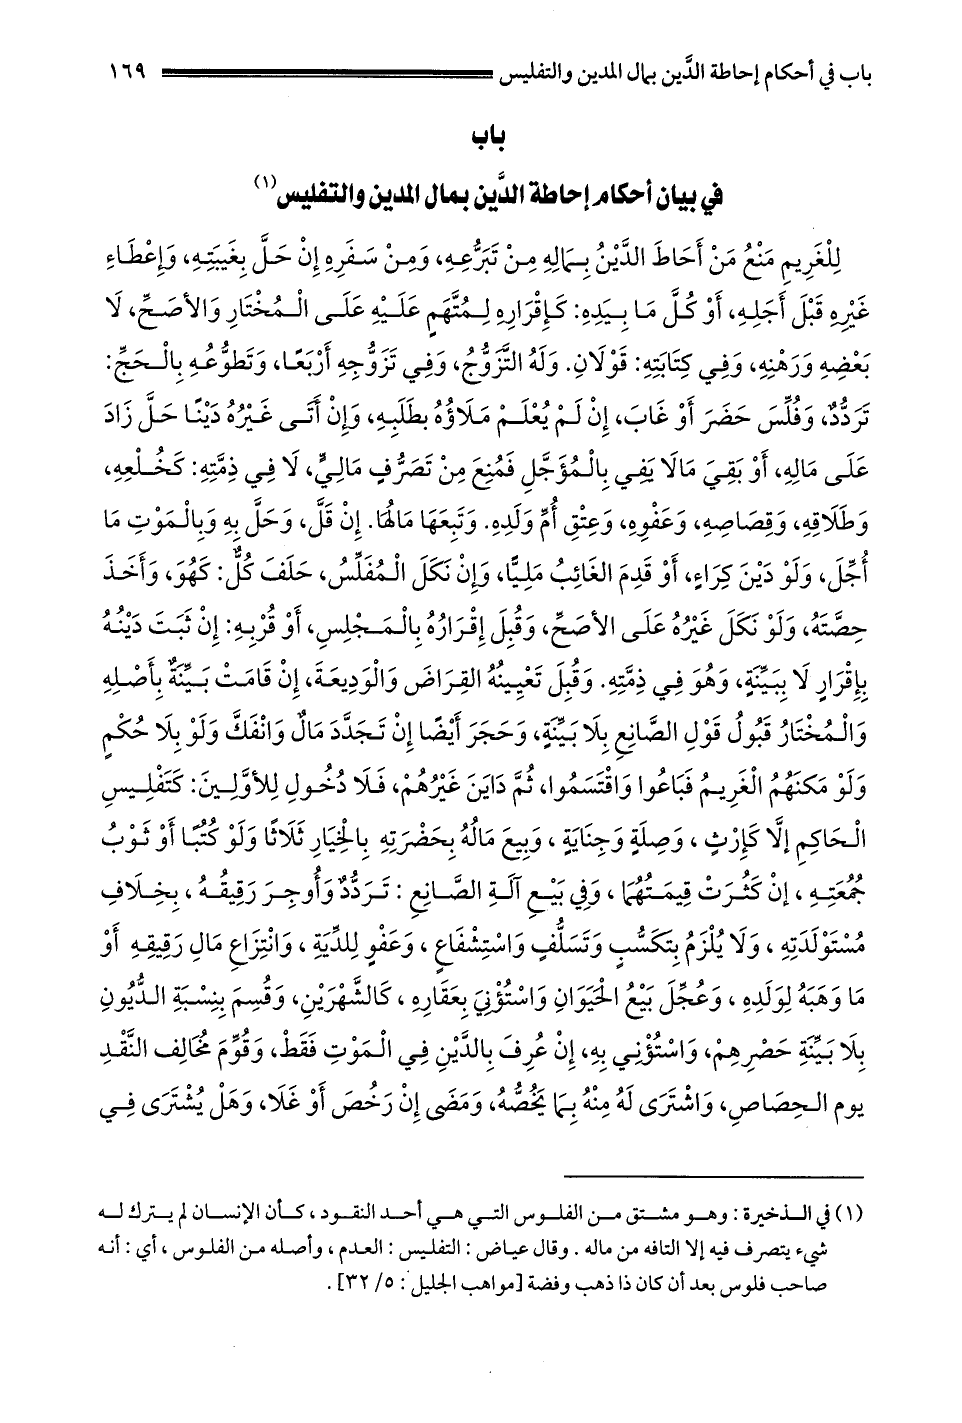 باب في أحكام إحاطة الدَّين بمال المدين والتفليس ١٦٩
باب
في بيان أحكام إحاطة الدَّين بمال المدين والتفليس(١)
لِلْغَرِيمِ مَنْعُ مَنْ أَحَاطَ الدَّيْنُ بِمَالِهِ مِنْ تَبَرُّعِهِ، وَمِنْ سَفَرِهِ إِنْ حَلَّ بِغَيبَتِهِ، وَإِعْطَاءِ
غَيْرِهِ قَبْلَ أَجَلِهِ، أَوْ كُلَّ مَا بِيَدِهِ: كَإِقْرَارِهِ لِمُتَّهَمٍ عَلَيْهِ عَلَى الْمُخْتَارِ وَالأَصَحِّ، لَا
بَعْضِهِ وَرَهْنِهِ، وَفِي كِتَابَتِهِ: قَوْلَان. وَلَهُ التَّزَوُّجُ، وَفِي تَزَوُّجِهِ أَرْبَعًا، وَتَطَوُّعُهِ بِالْحَجِّ:
تَرَدُّدٌ، وَفُلِّسَ حَضَرَ أَوْ غَابَ، إِنْ لَمْ يُعْلَمْ مَلَاؤُهُ بطَلَبِهِ، وَإِنْ أَتَى غَيْرُهُ دَيْنًا حَلَّ زَادَ
عَلَى مَالِهِ، أَوْ بَقِيَ مَالا يَفِي بِالْمُؤَجَّلِ فَمُنِعَ مِنْ تَصَرُّفٍ مَالِيٍّ، لَا فِي ذِمَّتِهِ: كَخُلْعِهِ،
وَطَلَاقِهِ، وَقِصَاصِهِ، وَعَفْوِهِ، وَعِتْقِ أُمِّ وَلَدِهِ. وَتَبِعَهَا مَالُهَا. إِنْ قَلَّ، وَحَلَّ بِهِ وَبِالْمَوْتِ مَا
أُجِّلَ، وَلَوْ دَيْنَ كِرَاءٍ، أَوْ قَدِمَ الغَائِبُ مَلِيًّا، وَإِنْ نَكَلَ الْمُفَلَّسُ، حَلَفَ كُلٌّ: كَهُوَ، وَأَخَذَ
حِصَّتَهُ، وَلَوْ نَكَلَ غَيْرُهُ عَلَى الأَصَحِّ، وَقُبِلَ إِقْرَارُهُ بِالْمَجْلِسِ، أَوْ قُرْبِهِ: إِنْ ثَبَتَ دَيْنُهُ
بِإِقْرَارٍ لَا بِبَيِّنَةٍ، وَهُوَ فِي ذِمَّتِهِ. وَقُبِلَ تَعْيِينُهُ القِرَاضَ وَالْوَدِيعَةَ، إِنْ قَامَتْ بَيِّنَةٌ بِأَصْلِهِ
وَالْمُخْتَارُ قَبُولُ قَوْلِ الصَّانِعِ بِلَا بَيِّنَةٍ، وَحَجَرَ أَيْضًا إِنْ تَجَدَّدَ مَالٌ وَانْفَكَّ وَلَوْ بِلَا حُكْمٍ
وَلَوْ مَكَنَهُمُ الْغَرِيمُ فَبَاعُوا وَاقْتَسَمُوا، ثُمَّ دَايَنَ غَيْرُهُمْ، فَلَا دُخُولِ لِلأوَّلِينَ: كَتَفْلِيسِ
الْحَاكِمِ إِلَّا كَإِرْثٍ ، وَصِلَةٍ وَجِنَايَةٍ ، وَبِيعَ مَالُهُ بِحَضْرَتِهِ بِالْخِيَارِ ثَلَاثًا وَلَوْ كُتُبًا أَوْ ثَوْبُ
جُمُعَتِهِ ، إِنْ كَثُرَتْ قِيمَتُهُمَا ، وَفِي بَيْعِ آلَةِ الصَّانِعِ : تَرَدُّدٌ وَأُوجِرَ رَقِيقُهُ ، بِخِلَافِ
مُسْتَوْلَدَتِهِ ، وَلَا يُلْزَمُ بِتَكَسُّبٍ وَتَسَلُّفٍ وَاسْتِشْفَاعٍ ، وَعَفْوٍ لِلدِّيَةِ ، وَانْتِزَاعِ مَالِ رَقِيقِهِ أَوْ
مَا وَهَبَهُ لِوَلَدِهِ ، وَعُجِّلَ بَيْعُ الْحَيَوَانِ وَاسْتُؤْنِيَ بِعَقَارِهِ ، كَالشَّهْرَيْنِ، وَقُسِمَ بِنِسْبَةِ الدُّيُونِ
بِلَا بَيِّنَةِ حَصْرِهِمْ، وَاسْتُؤْنِي بِهِ، إِنْ عُرِفَ بِالدَّيْنِ فِي الْمَوْتِ فَقَطْ، وَقُوِّمَ مُخَالِف النَّقْدِ
يوم الحِصَاصِ، وَاشْتَرَى لَهُ مِنْهُ بِمَا يَخُصُّهُ، وَمَضَى إِنْ رَخُصَ أَوْ غَلَا، وَهَلْ يُشْتَرَى فِي
(١) في الذخيرة : وهو مشتق من الفلوس التي هي أحد النقود ، كأن الإنسان لم يترك له
شيء يتصرف فيه إلا التافه من ماله . وقال عياض : التفليس : العدم ، وأصله من الفلوس ، أي : أنه
صاحب فلوس بعد أن كان ذا ذهب وفضة [مواهب الجليل : ٥/ ٣٢] .